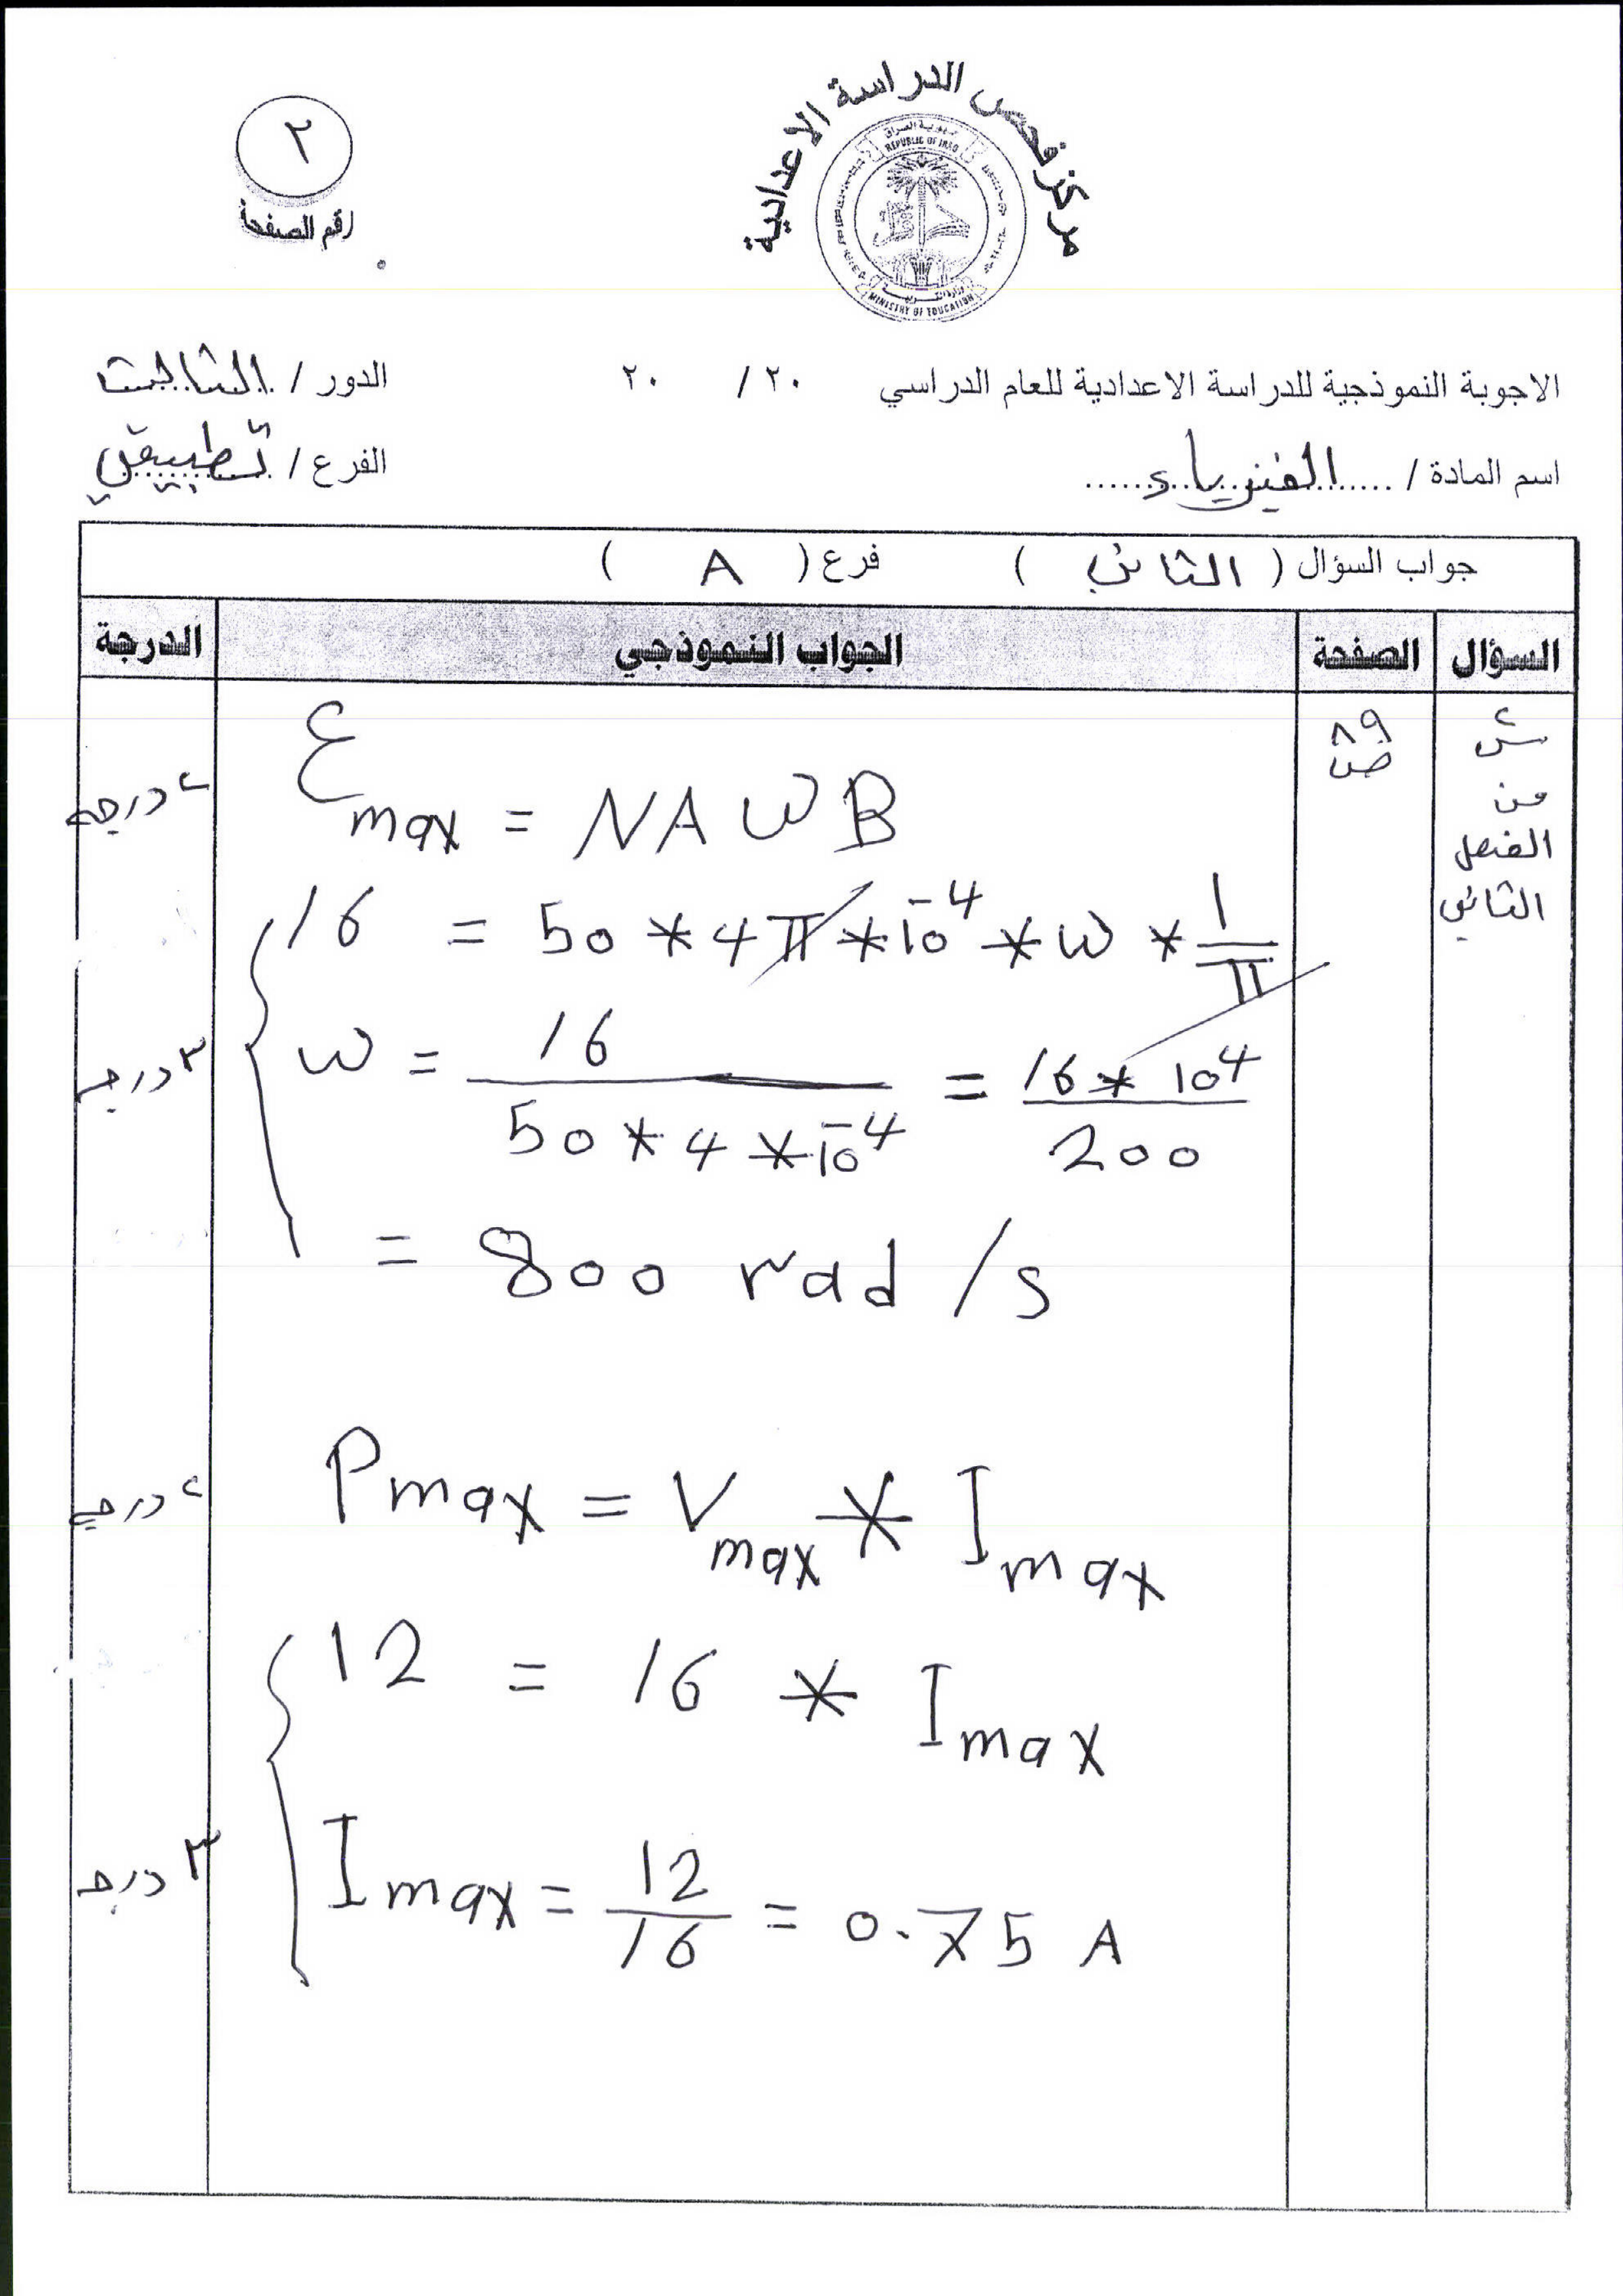 مركز فحص الدراسة الاعدادية
جمهورية العراق
REPUBLIC OF IRAQ
وزارة التربية
MINISTRY OF EDUCATION
٢
رقم الصفحة
الاجوبة النموذجية للدراسة الاعدادية للعام الدراسي ٢٠ / ٢٠
الدور / الثالث
اسم المادة / الفيزياء
الفرع / تطبيقي
جواب السؤال ( الثاني ) فرع ( A )
السؤال الصفحة الجواب النموذجي الدرجة
من
الفصل
الثاني
٨٩
ص
Ɛmax = NAωB
٢ درجة
16 = 50 * 4π * 10⁻⁴ * ω * 1/π
ω = 16 / 50 * 4 * 10⁻⁴ = 16 * 10⁴ / 200
٣ درجة
= 800 rad / s
Pmax = Vmax * Imax
٢ درجة
12 = 16 * Imax
Imax = 12/16 = 0.75 A
٣ درجة